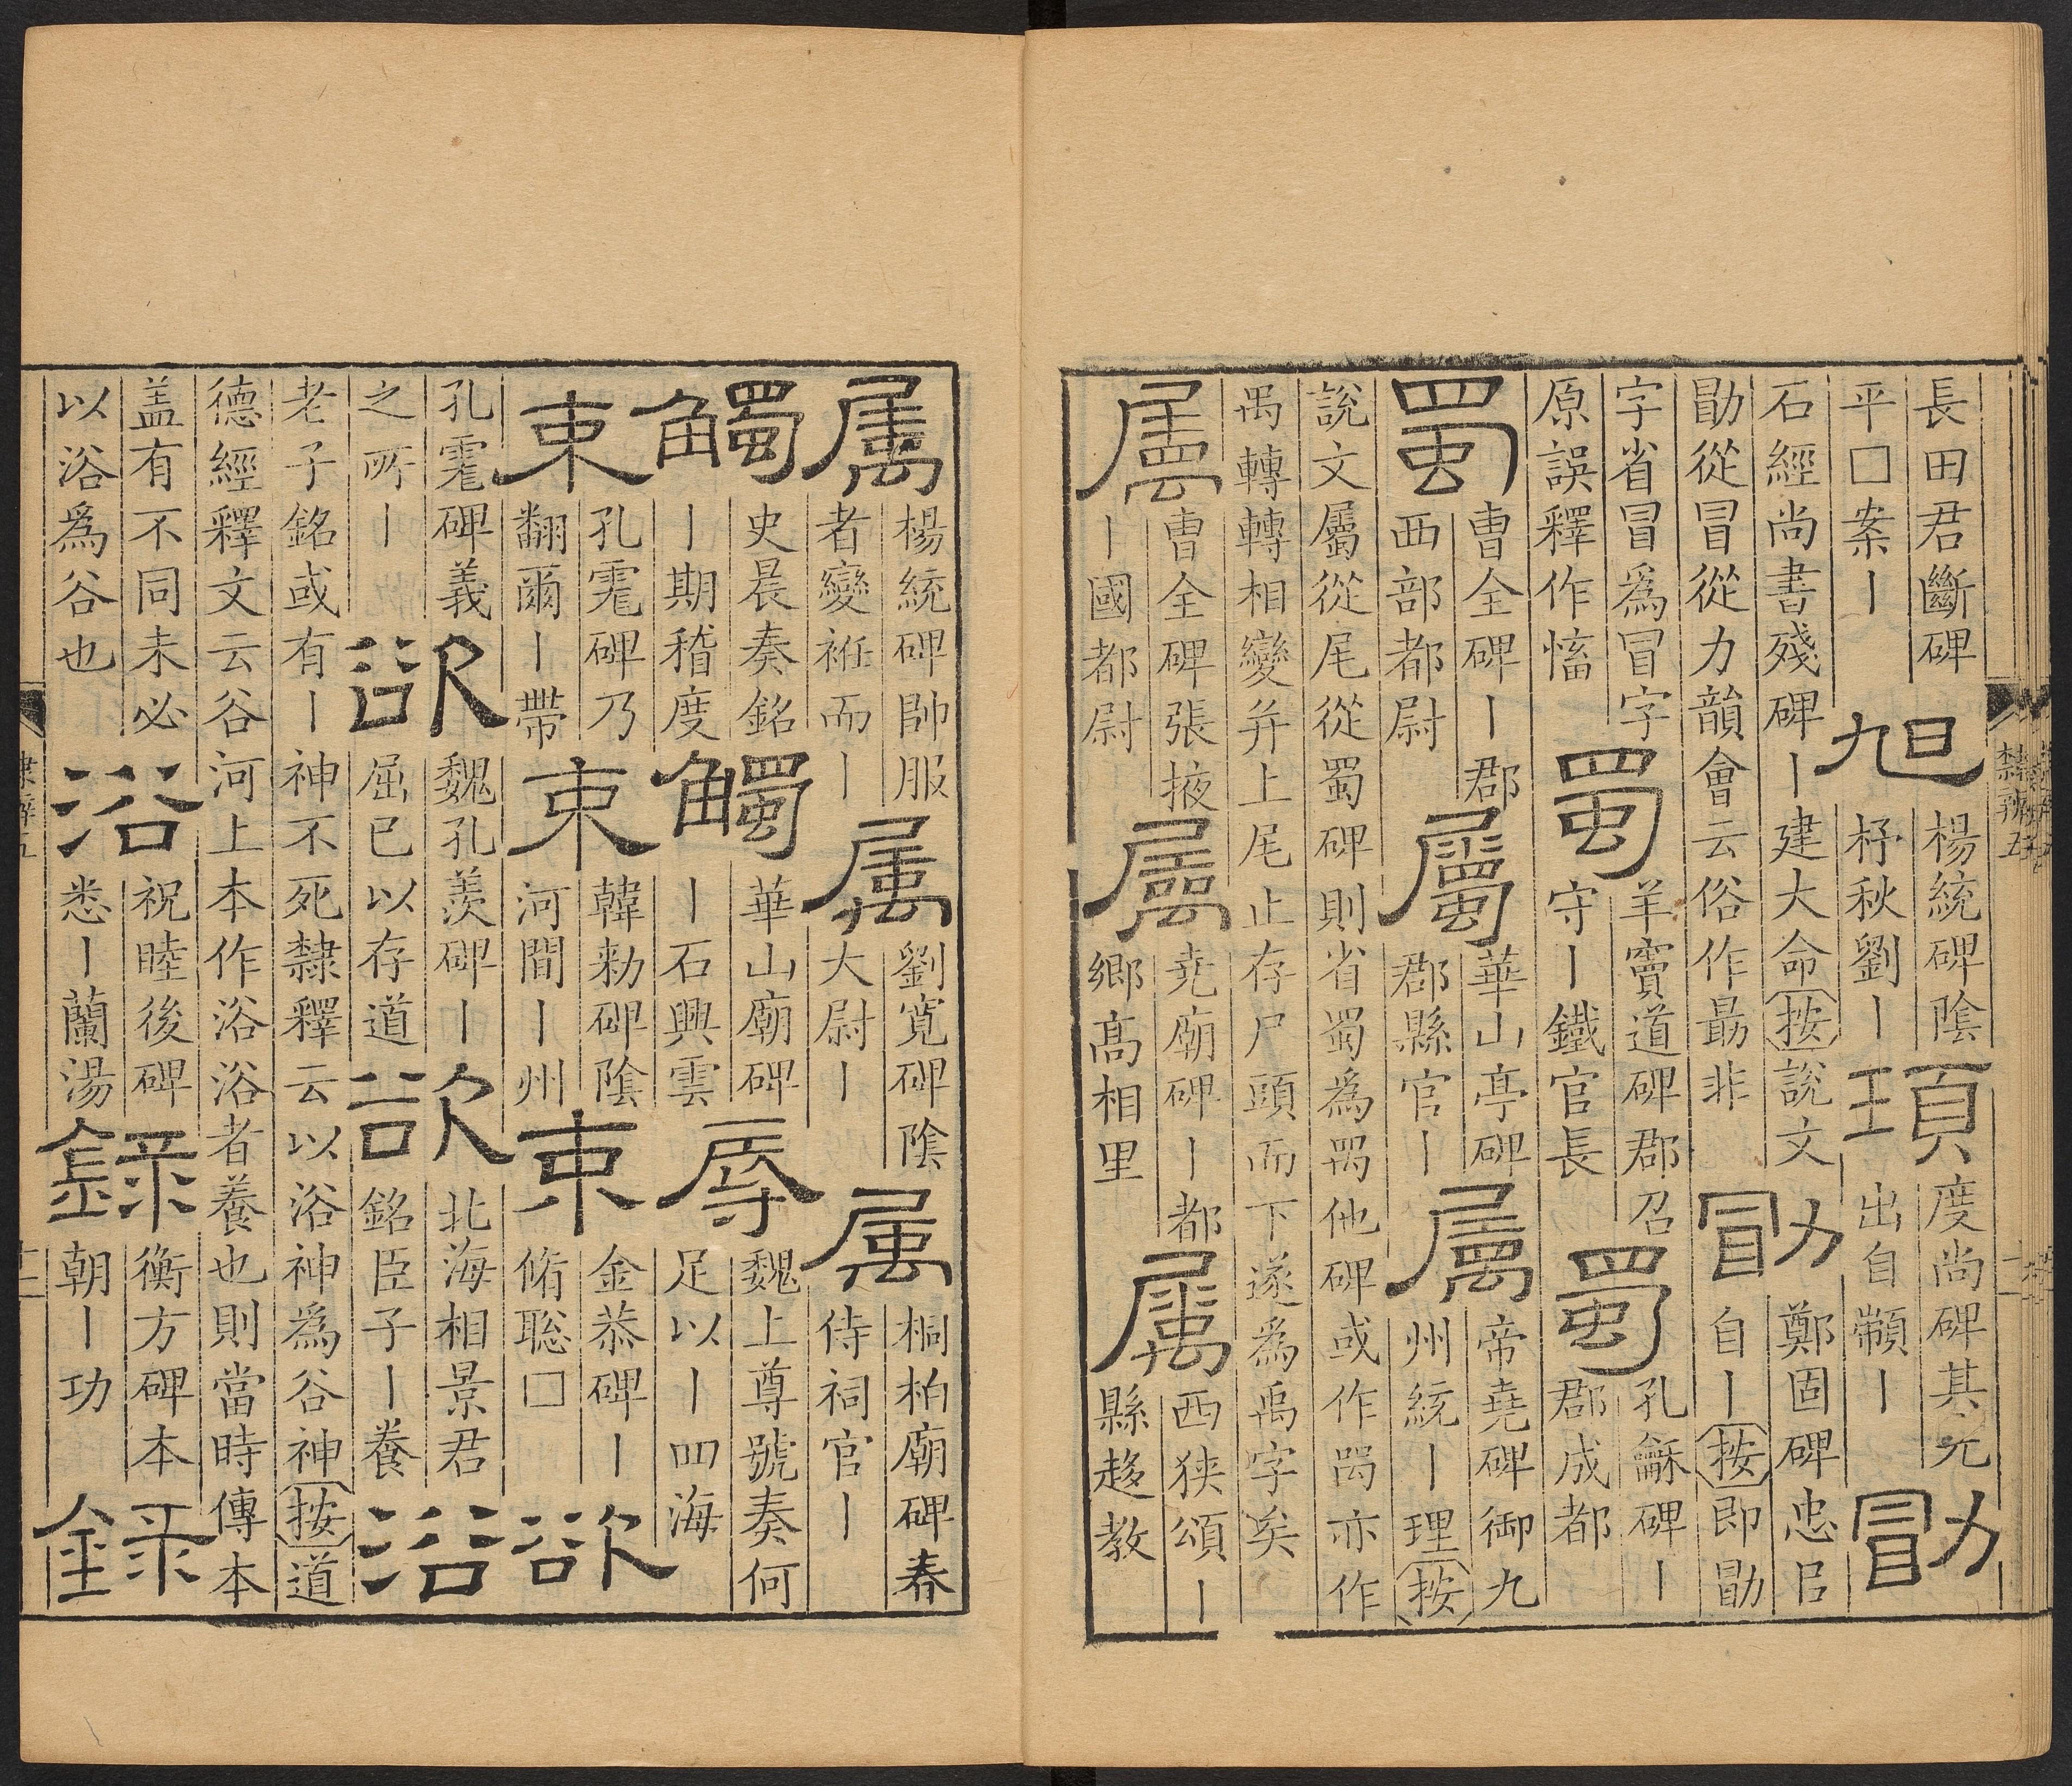 長田君斷碑
平□案丨
旭
楊統碑陰
杼秋劉丨
項
度尚碑其先
出自顓丨
勖
石經尚書殘碑丨建大命按說文
勖從冒從力韻會云俗作最非
勖
鄭固碑忠㠯
自丨按即勖
字省冒爲冒字
原誤釋作慉
蜀
羊竇道碑郡召
守丨鐵官長
蜀
孔龢碑丨
郡成都
蜀
曹全碑丨郡
西部都尉
屬
華山亭碑
郡縣官丨
属
帝堯碑御九
州統丨理按
說文屬從尾從蜀碑則省蜀爲他碑或作咼亦作
禺轉轉相變并上尾止存尸頭而下遂爲禹字矣
屬
曹全碑張掖
丨國都尉
屬
堯廟碑丨都
鄉高相里
属
西狹頌丨
縣趍教
隸辨五
属
楊統碑帥服
者變袵而丨
属
劉寬碑陰
大尉丨
属
桐柏廟碑春
侍祠官丨
觸
史晨奏銘
丨期稽度
觸
華山廟碑
丨石興雲
辱
魏上尊號奏何
足以丨四海
束
孔碑乃
翻爾丨帶
束
韓勑碑陰
河間丨州
束
金恭碑丨
脩聡□
欲
孔碑義
之所丨
欲
魏孔羨碑丨
屈已以存道
欲
北海相景君
銘臣子丨養
浴
老子銘或有丨神不死隸釋云以浴神爲谷神按道
德經釋文云谷河上本作浴浴者養也則當時傳本
盖有不同未必
以浴爲谷也
浴
祝睦後碑
悉丨蘭湯
録
衡方碑本
朝丨功
録